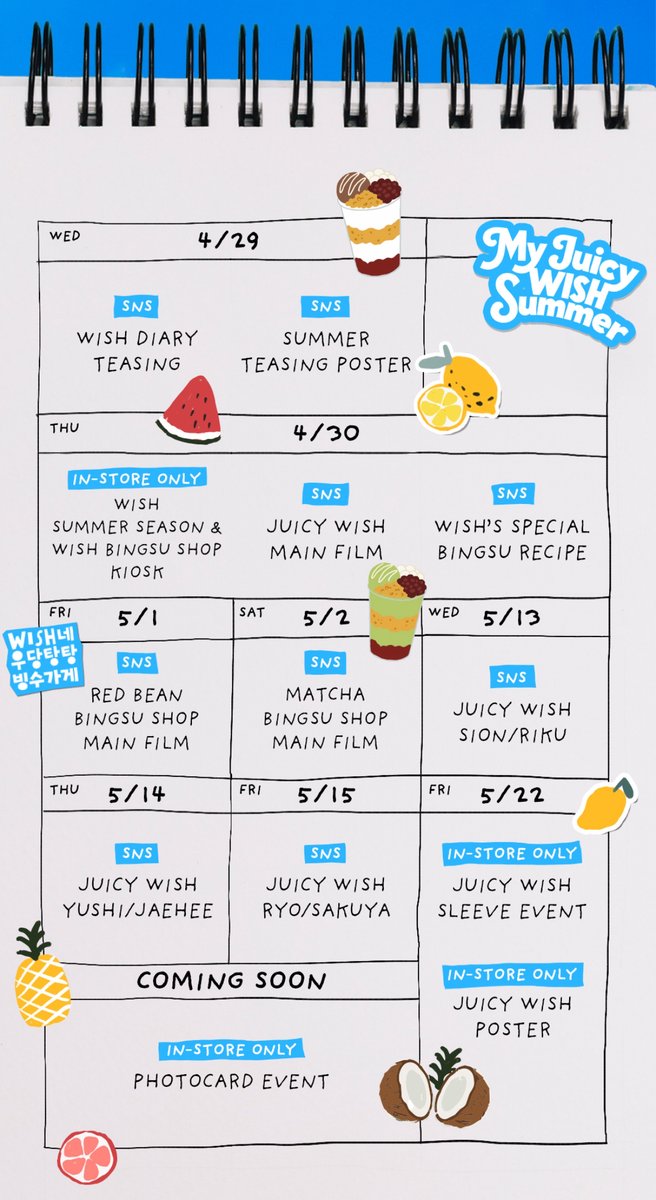 WED 4/29
My Juicy
WISH
Summer
SNS
WISH DIARY
TEASING
SNS
SUMMER
TEASING POSTER
THU 4/30
IN-STORE ONLY
WISH
SUMMER SEASON &
WISH BINGSU SHOP
KIOSK
SNS
JUICY WISH
MAIN FILM
SNS
WISH'S SPECIAL
BINGSU RECIPE
WISH네
우당탕탕
빙수가게
FRI 5/1
SNS
RED BEAN
BINGSU SHOP
MAIN FILM
SAT 5/2
SNS
MATCHA
BINGSU SHOP
MAIN FILM
WED 5/13
SNS
JUICY WISH
SION/RIKU
THU 5/14
SNS
JUICY WISH
YUSHI/JAEHEE
FRI 5/15
SNS
JUICY WISH
RYO/SAKUYA
FRI 5/22
IN-STORE ONLY
JUICY WISH
SLEEVE EVENT
IN-STORE ONLY
JUICY WISH
POSTER
COMING SOON
IN-STORE ONLY
PHOTOCARD EVENT